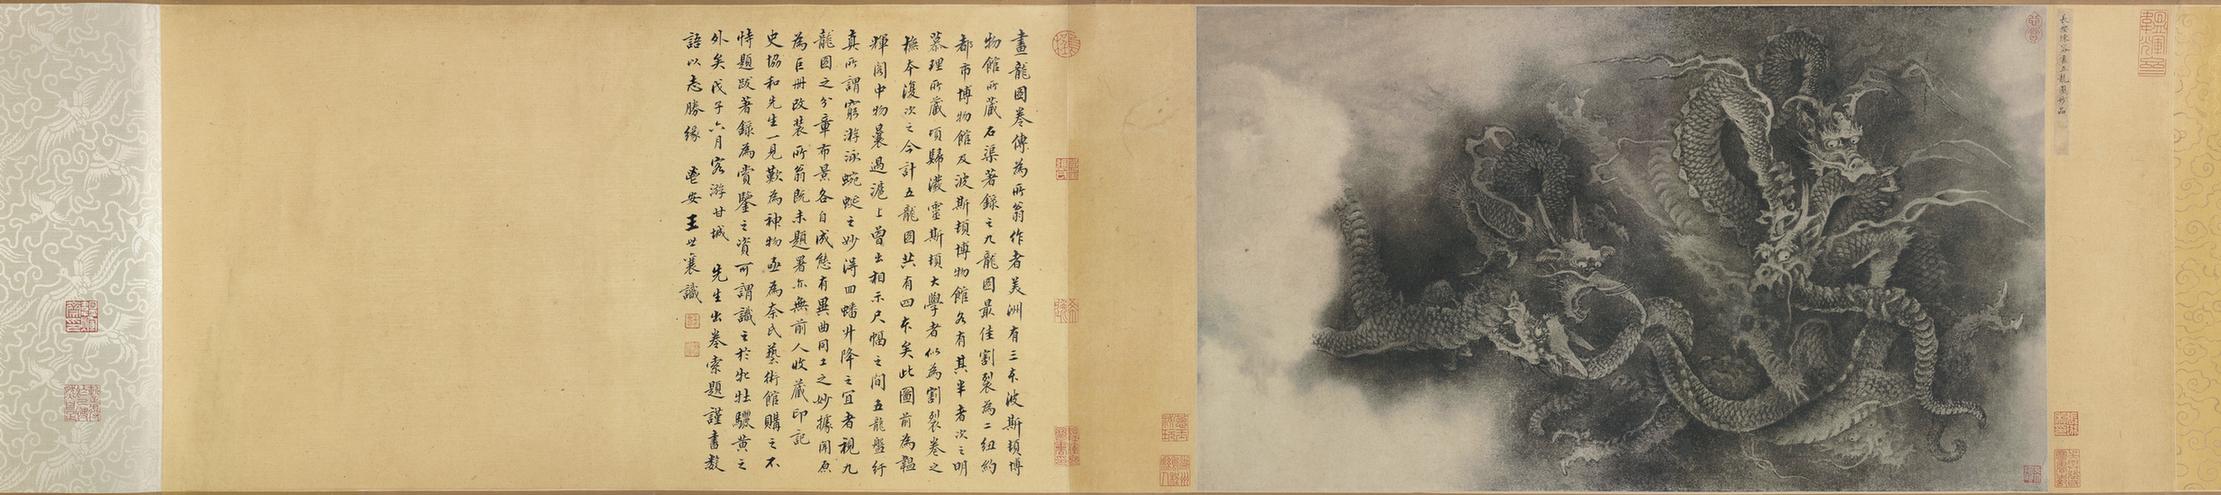 長安陳容畫五龍圖妙品
畫龍圖卷傳為所翁作者美洲有三本波斯頓博
物館所藏石渠著錄之九龍圖最佳割裂為二紐約
都市博物館及波斯頓博物館各有其半者次之明
慕理所藏項歸濮靈斯頓大學者似為割裂卷之
撫本復次之今計五龍圖共有四本矣此圖前為韞
輝閣中物曩過滬上曾出相示尺幅之間五龍盤紆
真所謂窮游泳蜿蜒之妙得回蟠升降之宜者視九
龍圖之分章布景各自成態有異曲同工之妙據聞原
為巨册改裝所翁既未題署亦無前人收藏印記
史協和先生一見歎為神物亟為奈氏藝術館購之不
特題跋著錄為賞鑒之資可謂識之於牝牡驪黃之
外矣戊子六月客游甘城 先生出卷索題謹書數
語以志勝緣 鬯安王世襄識